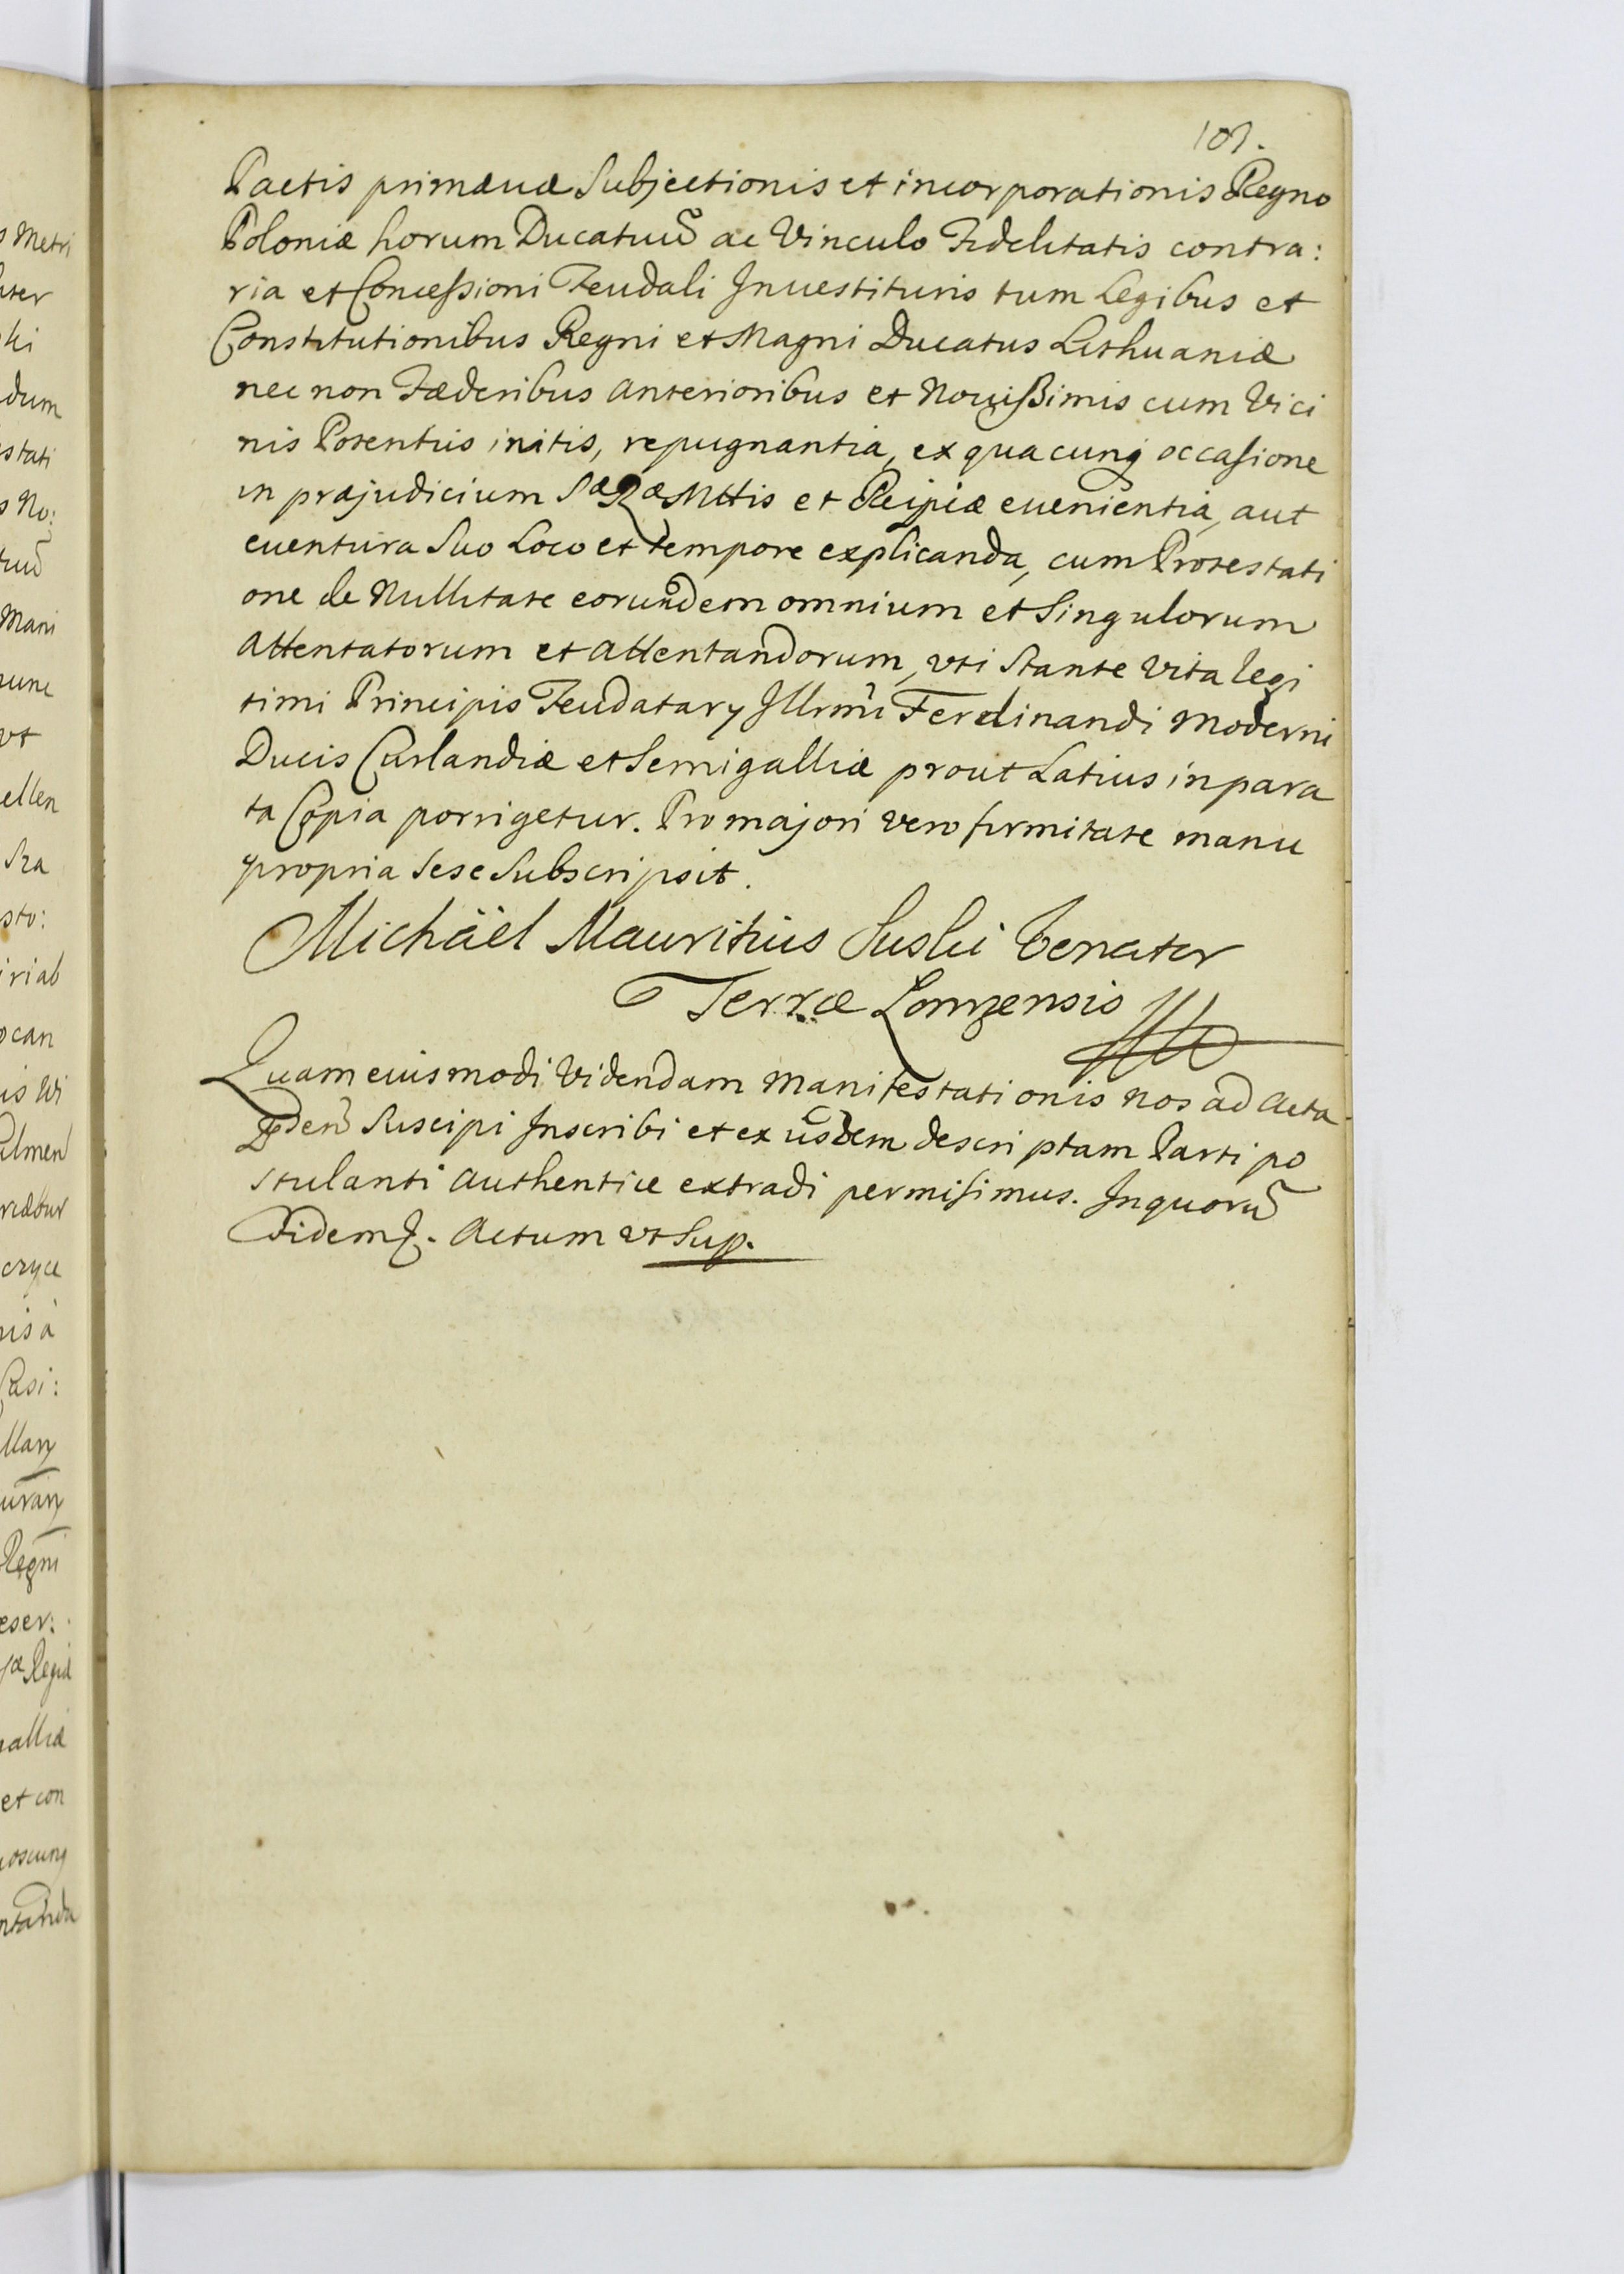 Pactis primævæ Subjectionis et incorporationis Regno
Poloniæ horum Ducatuũ ac Vinculo Fidelitatis contra:
ria et Concessioni Feudali Inuestituris tum Legibus et
Constitutionibus Regni et Magni Ducatus Lithuaniæ
nec non Fæderibus anterioribus et Nouissimis cum Vici
nis Potentiis initis, repugnantia, ex quacunq occasione
in præjudicium Sæ Ræ Mttis et Reipcæ euenientia, aut
euentura Suo Loco et tempore explicanda, cum Protestati
one de Nullitate eorundem omnium et Singulorum
attentatorum et attentandorum, vti Stante Vita legi
timi Principis Feudatary Illrmi Ferdinandi Moderni
Ducis Curlandiæ et Semigalliæ prout Latius in para
ta Copia porrigetur. Pro majori vero firmitate manu
propria Sese Subscripsit.
Michäel Mauritius Suski Venator
Terræ Lomzensis
Quam eiusmodi Videndam Manifestationis nos ad Acta
Suscipi Inscribi et ex iisdem descriptam Parti po
stulanti Authentice extradi permisimus. In quorũ
Fidem. Actum vt Sup.